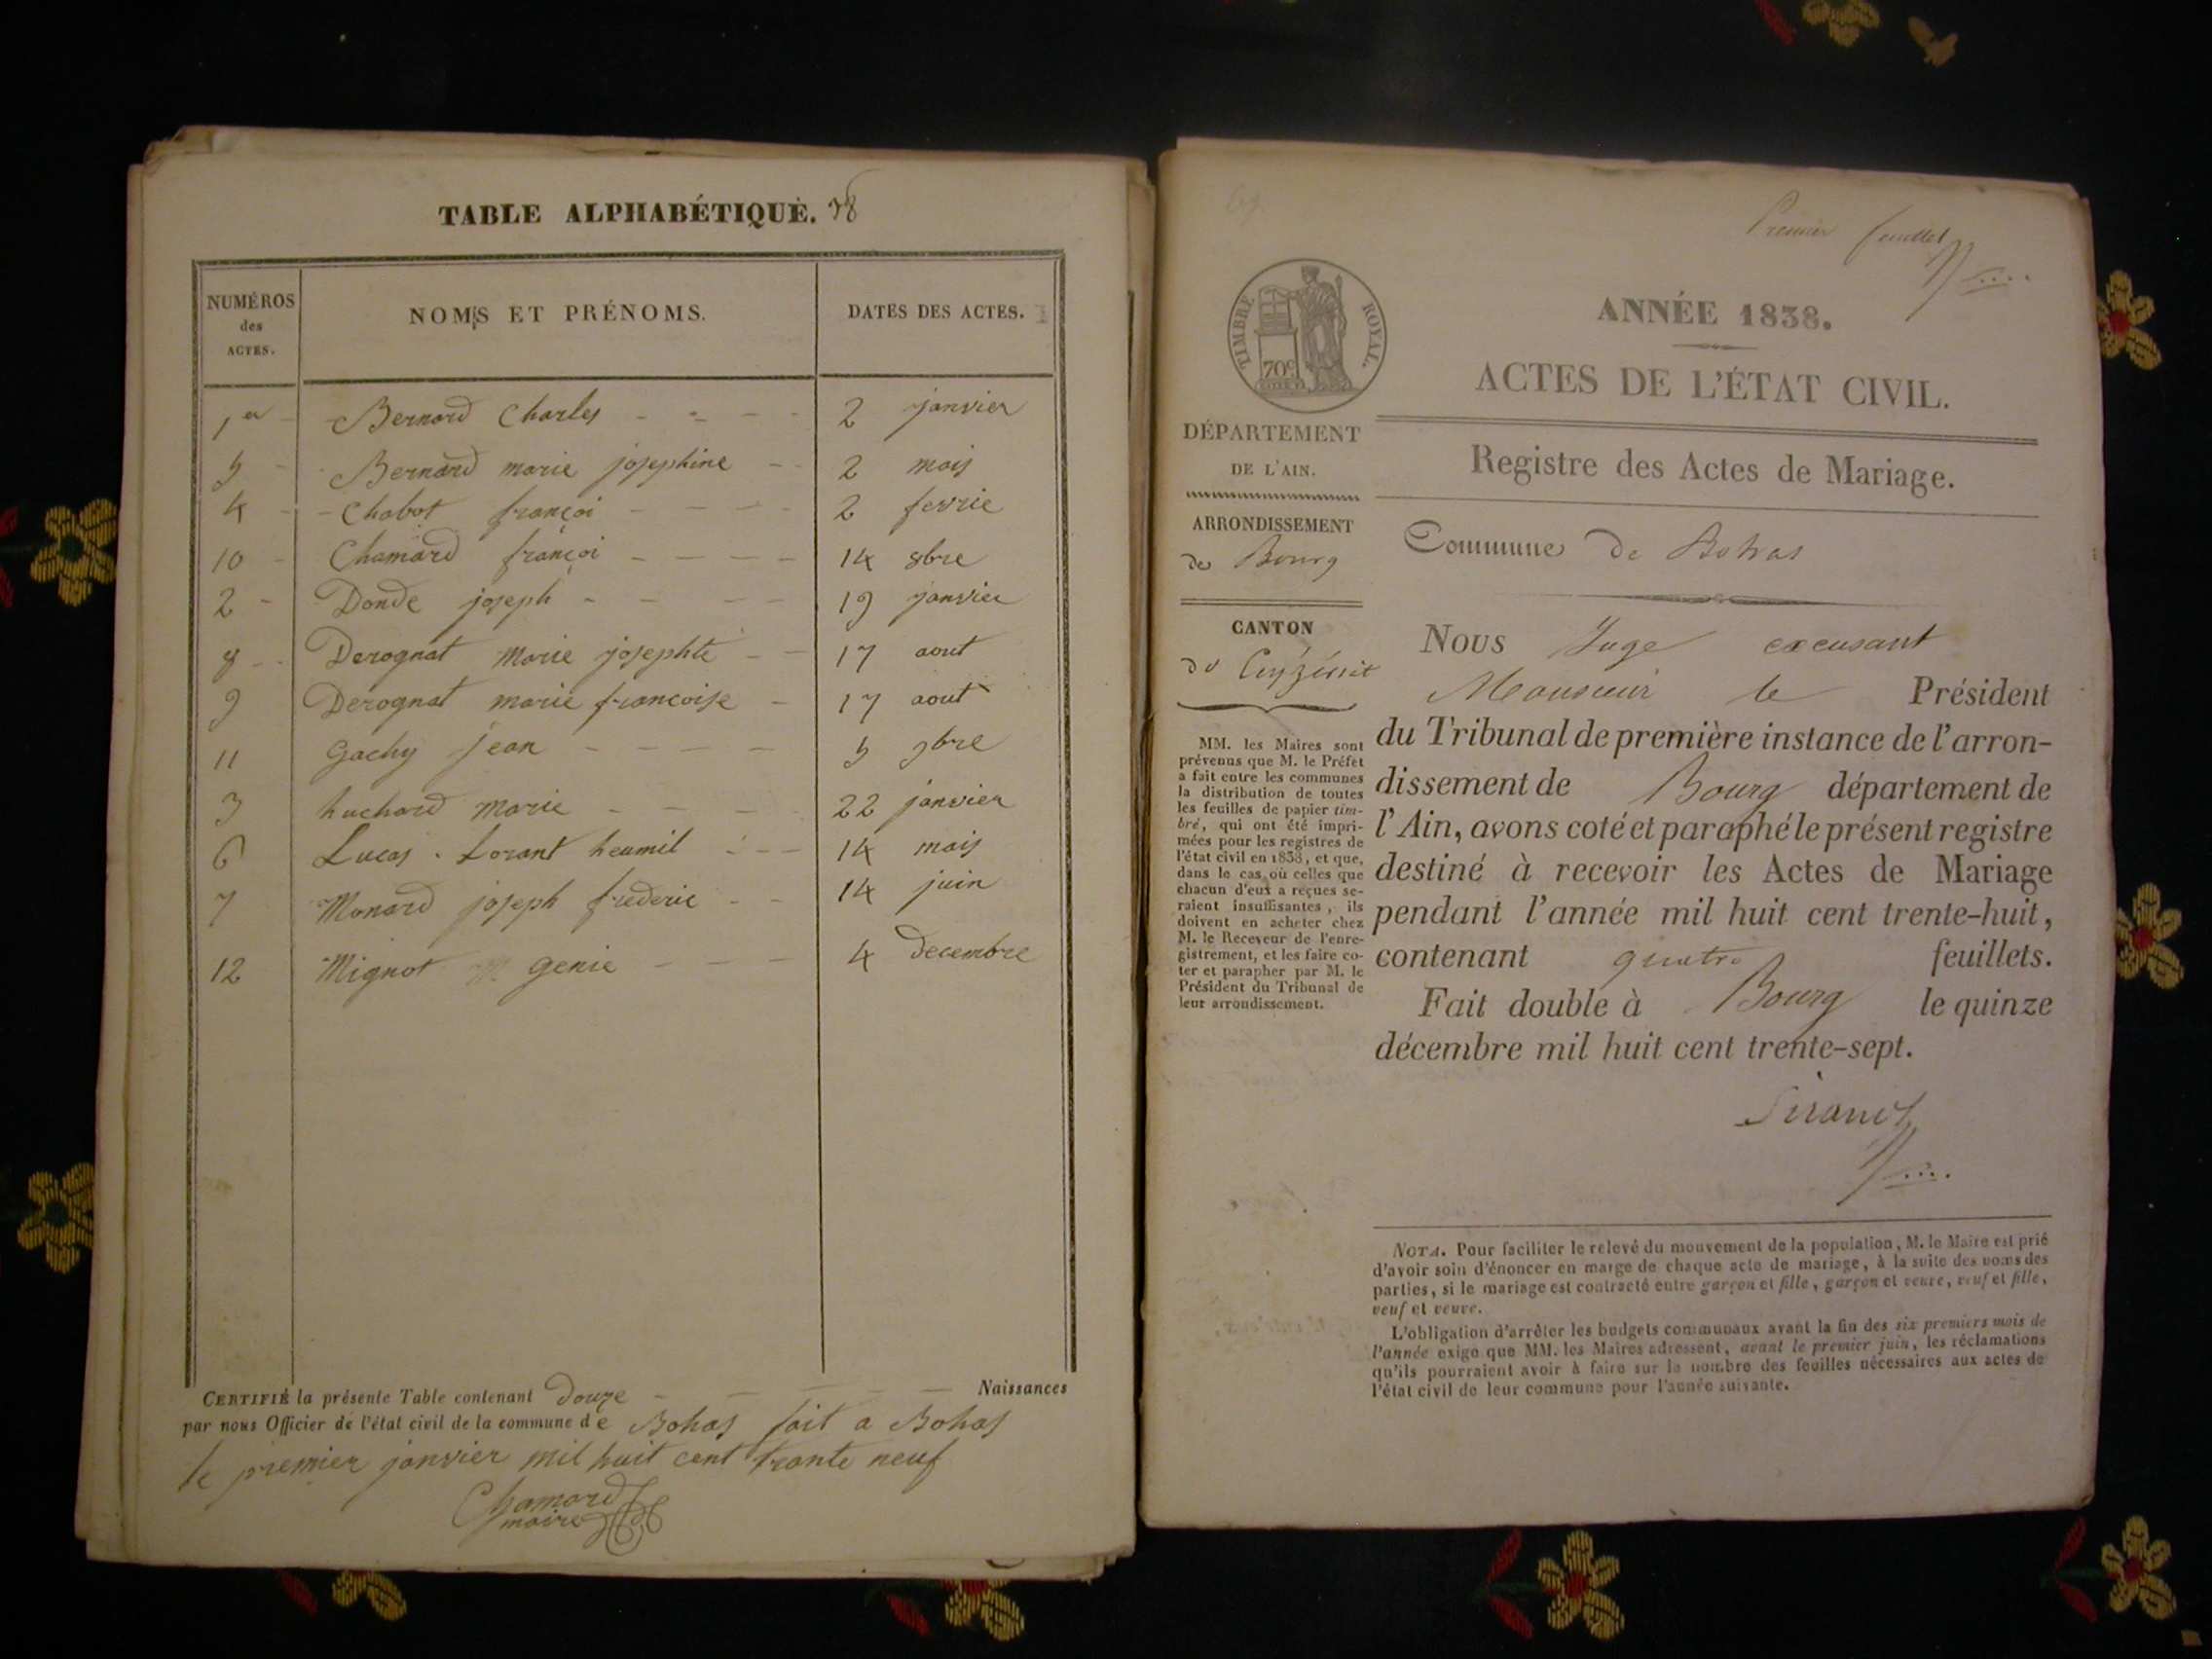 TABLE ALPHABÉTIQUE. 38
NUMÉROS des ACTES. NOMS ET PRÉNOMS. DATES DES ACTES.
1er Bernard Charles 2 janvier
5 Bernard marie josephine 2 mais
4 Chabot françoi 2 fevrie
10 Chamard françoi 14 8bre
2 Donde joseph 19 janvier
8 Derognat Marie josephte 17 aout
9 Derognat marie francoise 17 aout
11 Gachy jean 5 9bre
3 huchard Marie 22 janvier
6 Lucas Lorant heumil 14 mais
7 Monard joseph frederic 14 juin
12 Mignot genie 4 decembre
CERTIFIÉ la présente Table contenant Douze Naissances
par nous Officier de l'état civil de la commune de Bohas fait a Bohas
le premier janvier mil huit cent trante neuf
Chamard
maire
Premier feuillet
TIMBRE ROYAL.
70c
ANNÉE 1838.
ACTES DE L'ÉTAT CIVIL.
DÉPARTEMENT
DE L'AIN.
ARRONDISSEMENT
de Bourg
CANTON
de Ceyzériat
MM. les Maires sont
prévenus que M. le Préfet
a fait entre les communes
la distribution de toutes
les feuilles de papier tim-
bré, qui ont été impri-
mées pour les registres de
l'état civil en 1838, et que,
dans le cas où celles que
chacun d'eux a reçues se-
raient insuffisantes, ils
doivent en acheter chez
M. le Receveur de l'enre-
gistrement, et les faire co-
ter et parapher par M. le
Président du Tribunal de
leur arrondissement.
Registre des Actes de Mariage.
Commune de Bohas
Nous Juge excusant
Monsieur le Président
du Tribunal de première instance de l'arron-
dissement de Bourg département de
l'Ain, avons coté et paraphé le présent registre
destiné à recevoir les Actes de Mariage
pendant l'année mil huit cent trente-huit,
contenant quatre feuillets.
Fait double à Bourg le quinze
décembre mil huit cent trente-sept.
Sirand
NOTA. Pour faciliter le relevé du mouvement de la population, M. le Maire est prié
d'avoir soin d'énoncer en marge de chaque acte de mariage, à la suite des noms des
parties, si le mariage est contracté entre garçon et fille, garçon et veuve, veuf et fille,
veuf et veuve.
L'obligation d'arrêter les budgets communaux avant la fin des six premiers mois de
l'année exige que MM. les Maires adressent, avant le premier juin, les réclamations
qu'ils pourraient avoir à faire sur le nombre des feuilles nécessaires aux actes de
l'état civil de leur commune pour l'année suivante.